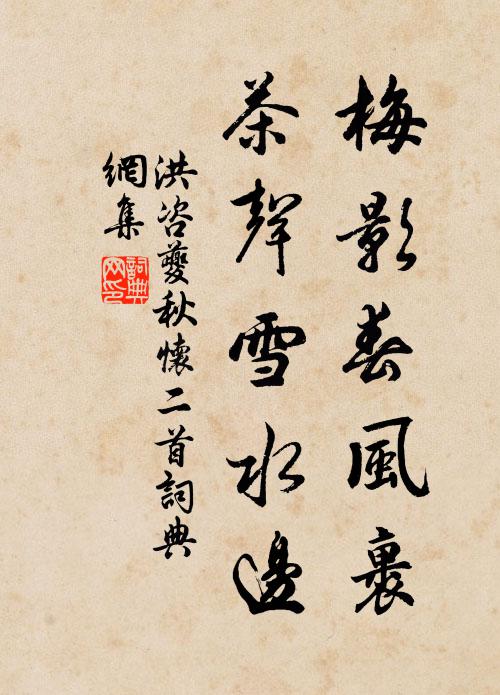 梅影春風裏
茶聲雪水邊
洪咨夔秋懷二首詞典
網集
詞典
网印